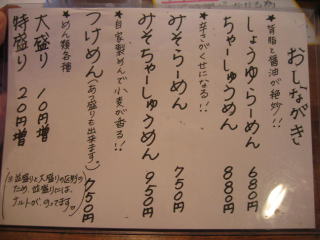 おしながき
★背脂と醤油が絶妙!!
しょうゆらーめん 680円
ちゃーしゅうめん 880円
★辛さがくせになる!!
みそらーめん 750円
みそちゃーしゅうめん 950円
★自家製めんで小麦が香る!!
つけめん(あつ盛りも出来ます。) 750円
★めん類各種
大盛り 10円増
特盛り 20円増
(※並盛りと大盛りの区別の
ため、並盛りには、
ナルトが、のってます。)